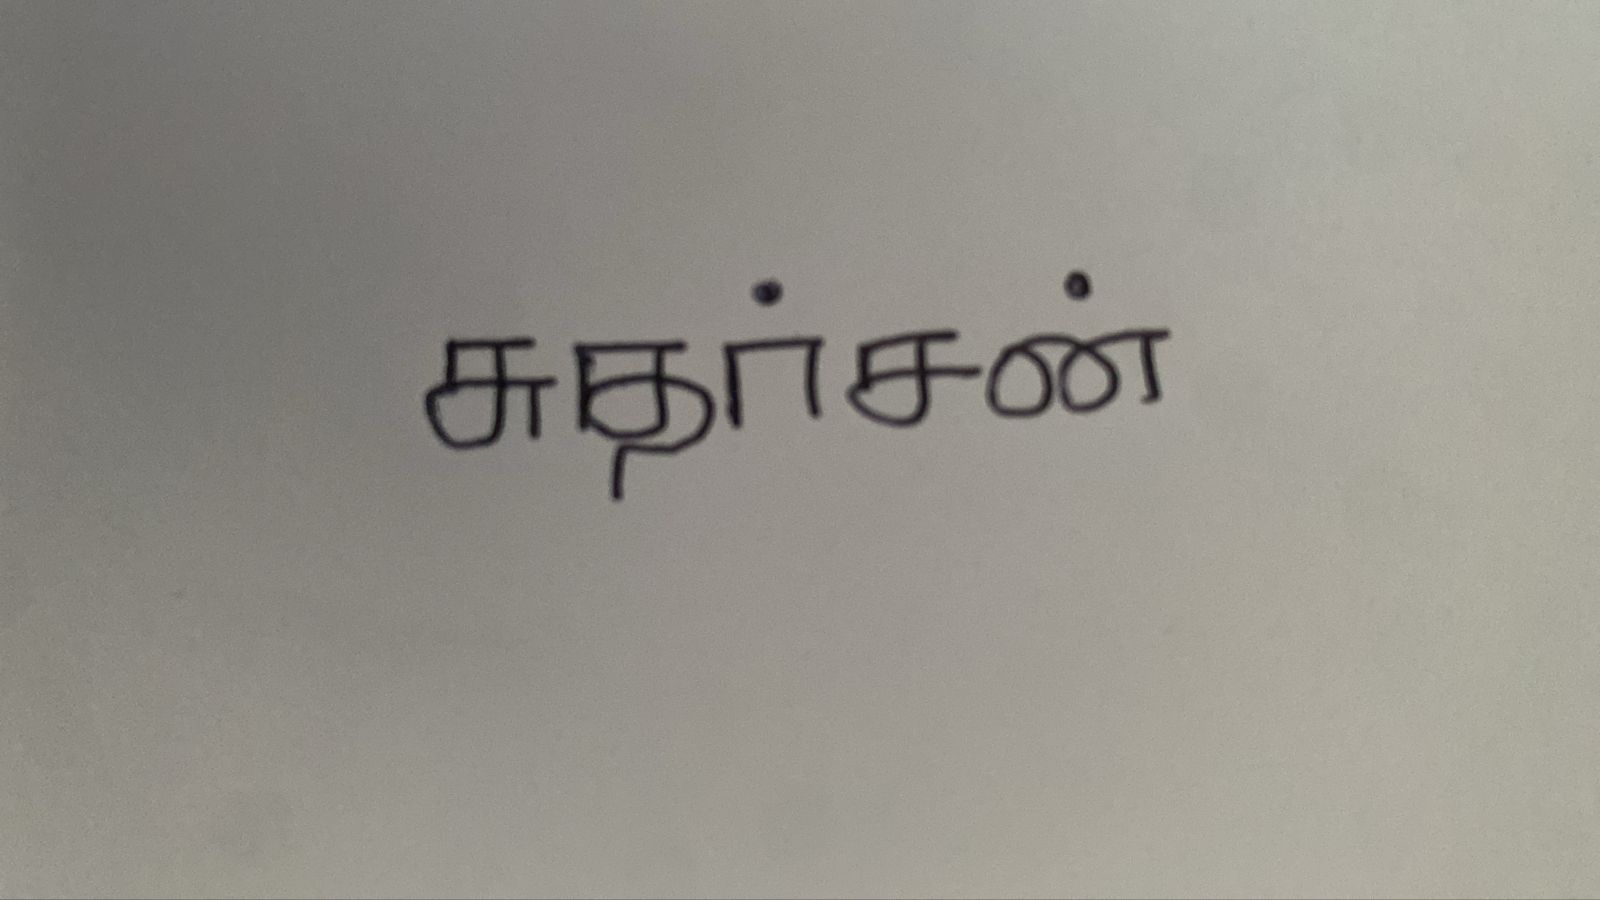 சுதர்சன்